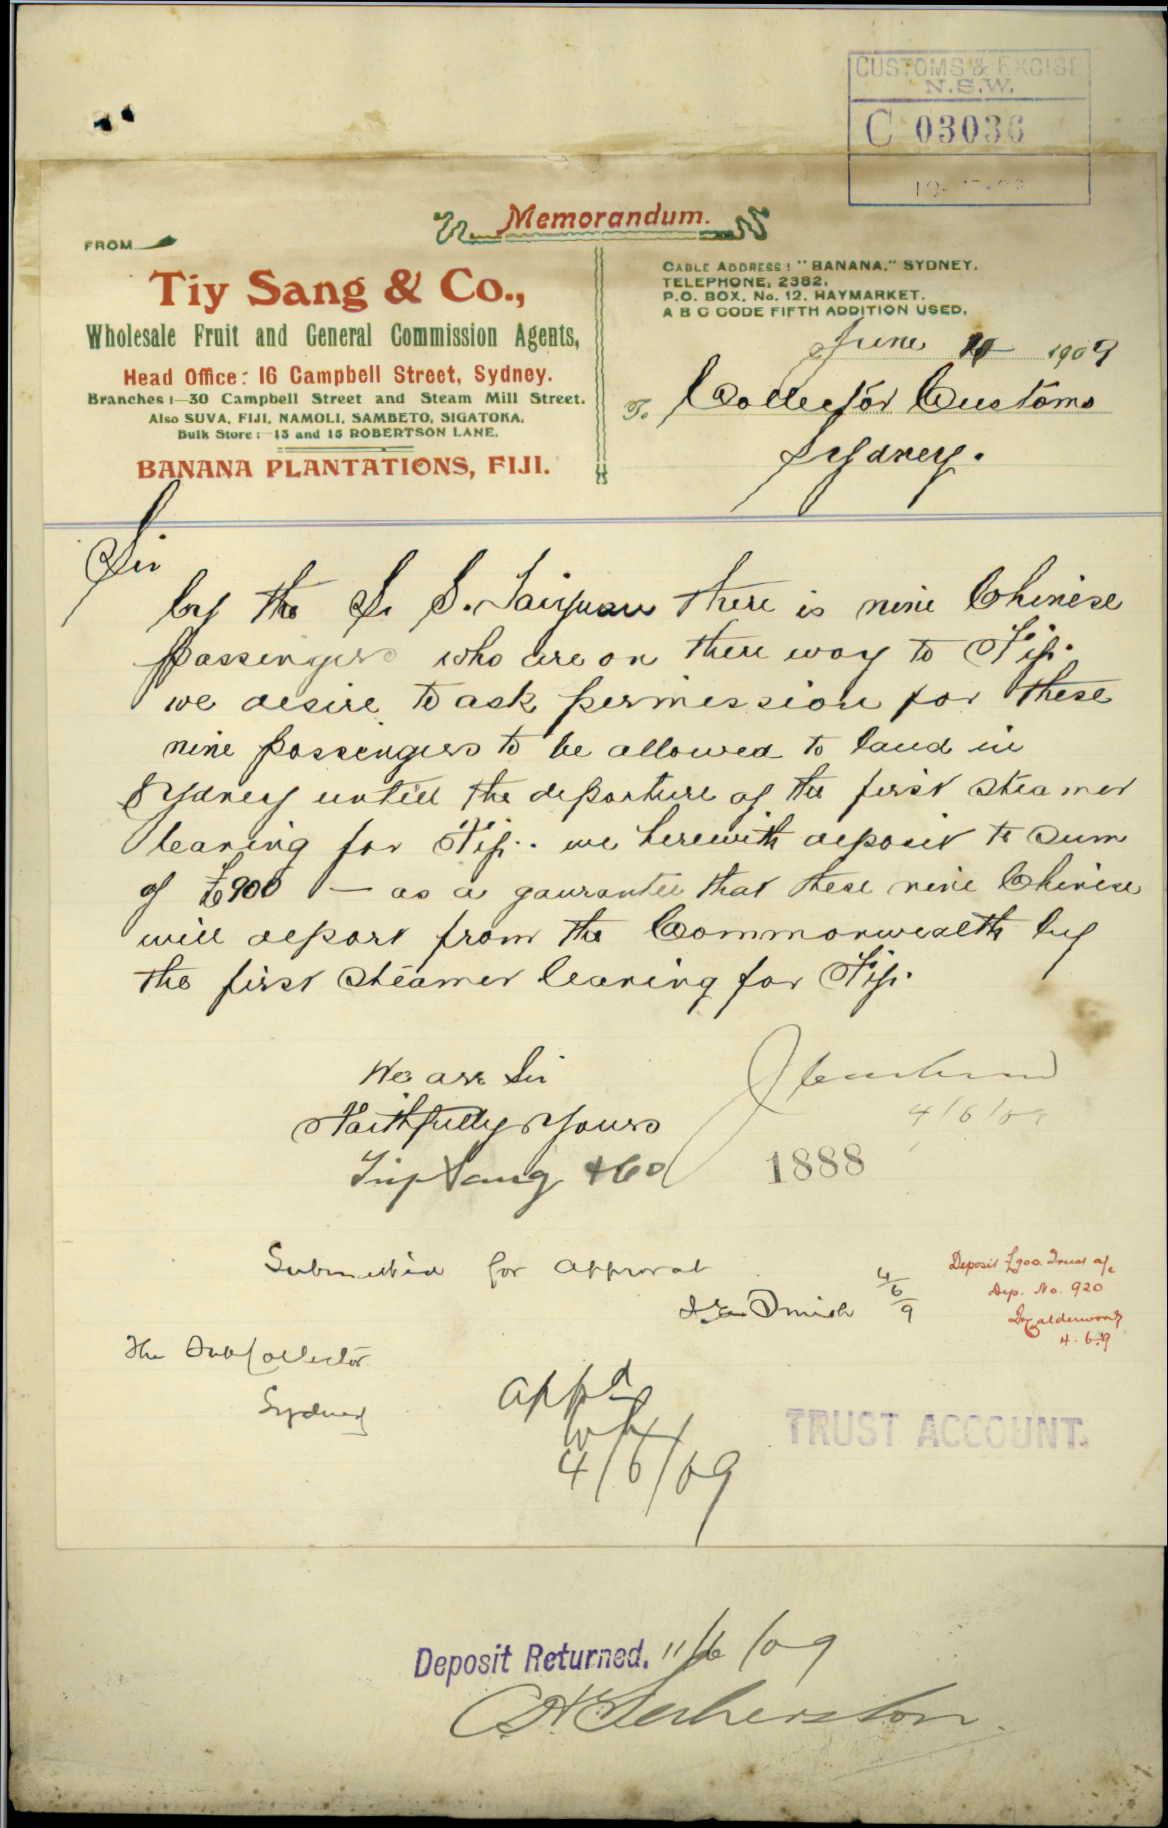 CUSTOMS & EXCISE
N.S.W.
C 03036
Memorandum.
FROM
Tiy Sang & Co.,
Wholesale Fruit and General Commission Agents,
Head Office: 16 Campbell Street, Sydney.
Branches:—30 Campbell Street and Steam Mill Street.
Also SUVA, FIJI, NAMOLI, SAMBETO, SIGATOKA.
Bulk Store:—13 and 15 ROBERTSON LANE.
BANANA PLANTATIONS, FIJI.
CABLE ADDRESS: "BANANA," SYDNEY.
TELEPHONE, 2382.
P.O. BOX, No. 12, HAYMARKET.
A B C CODE FIFTH ADDITION USED.
June 4 1909
To Collector Customs
Sydney.
Sir
by the S. S. Taiyuan there is nine Chinese
passengers who are on there way to Fiji.
we desire to ask permission for these
nine passengers to be allowed to land in
Sydney untill the departure of the first steamer
leaving for Fiji. we herewith deposit te sum
of £900 — as a gaurantee that these nine Chinese
will depart from the Commonwealth by
the first steamer leaving for Fiji.
We are Sir
Faithfully Yours
Tiy Sang & Co
4/6/09
1888
Submitted for approval
4/6/9
The Sub Collector
Sydney
Deposit £900 Trust a/c
Dep. No. 920
4.6.9
Appd
4/6/09
TRUST ACCOUNT.
Deposit Returned. 11/6/09